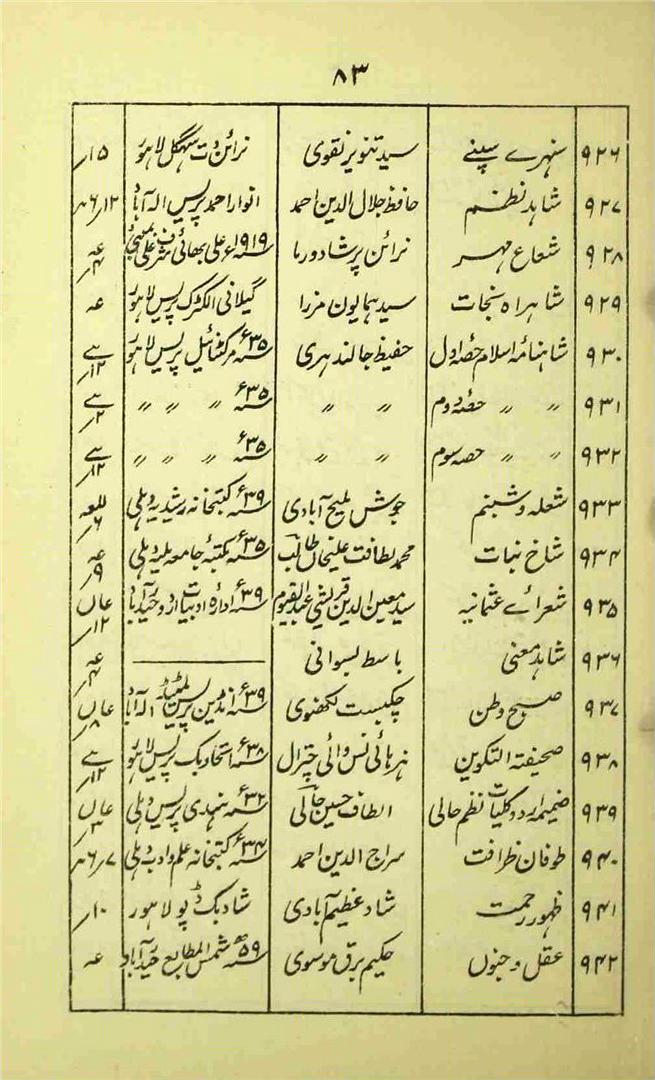 ۸۳
۹۲۶ سنہرے سپنے سید تنویر نقوی نرائن دت سہگل لاہور ۱۵ر
۹۲۷ شاہد نظم حافظ جلال الدین احمد انوار احمد پریس الہ آباد ۱۲ر ۶
۹۲۸ شعاع مہر نرائن پرشاد ورما ۱۹۱۹ء علی بھائی شرف علی بمبئی عہ ۴ر
۹۲۹ شاہراہ نجات سید ہمایوں مرزا گیلانی الکٹرک پریس لاہور عہ
۹۳۰ شاہنامہ اسلام حصہ اول حفیظ جالندہری ۳۵ء مرکنٹائیل پریس لاہور ۱۲ر
۹۳۱ 〃 〃 حصہ دوم 〃 〃 ۳۵ء 〃 〃 〃 ۲ر
۹۳۲ 〃 〃 حصہ سوم 〃 〃 ۳۵ء 〃 〃 〃 ۱۲ر
۹۳۳ شعلہ و شبنم جوش ملیح آبادی ۳۹ء کتبخانہ رشیدیہ دہلی للعہ ۶ر
۹۳۴ شاخ نبات محمد لطافت علیخاں طالب ۳۵ء مکتبۂ جامعہ ملیہ دہلی عہ ۹ر
۹۳۵ شعرائے عثمانیہ سید معین الدین قریشی عبدالقیوم ۳۹ء ادارہ ادبیات اردو حیدرآباد ۱۲ر
۹۳۶ شاہد معنی باسط بسوانی عہ ۴ر
۹۳۷ صبح وطن چکبست لکھنوی ۳۹ء انڈین پریس لمیٹیڈ الہ آباد ۸ر
۹۳۸ صحیفتہ التکوین ہزہائی نس وائی چترال ۳۸ء اتحاد بک پریس لاہور ۱۲ر
۹۳۹ ضمیمہ اردو کلیات نظم حالی الطاف حسین حالی ۳۲ء ہندی پریس دہلی ۳ر
۹۴۰ طوفان ظرافت سراج الدین احمد ۳۴ء کتبخانہ علم و ادب دہلی ۷ر ۶
۹۴۱ ظہور رحمت شاد عظیم آبادی شاد بک ڈپو لاہور ۱۰ر
۹۴۲ عقل و جنوں حکیم برق موسوی ۵۹ھ شمس المطابع حیدرآباد عہ